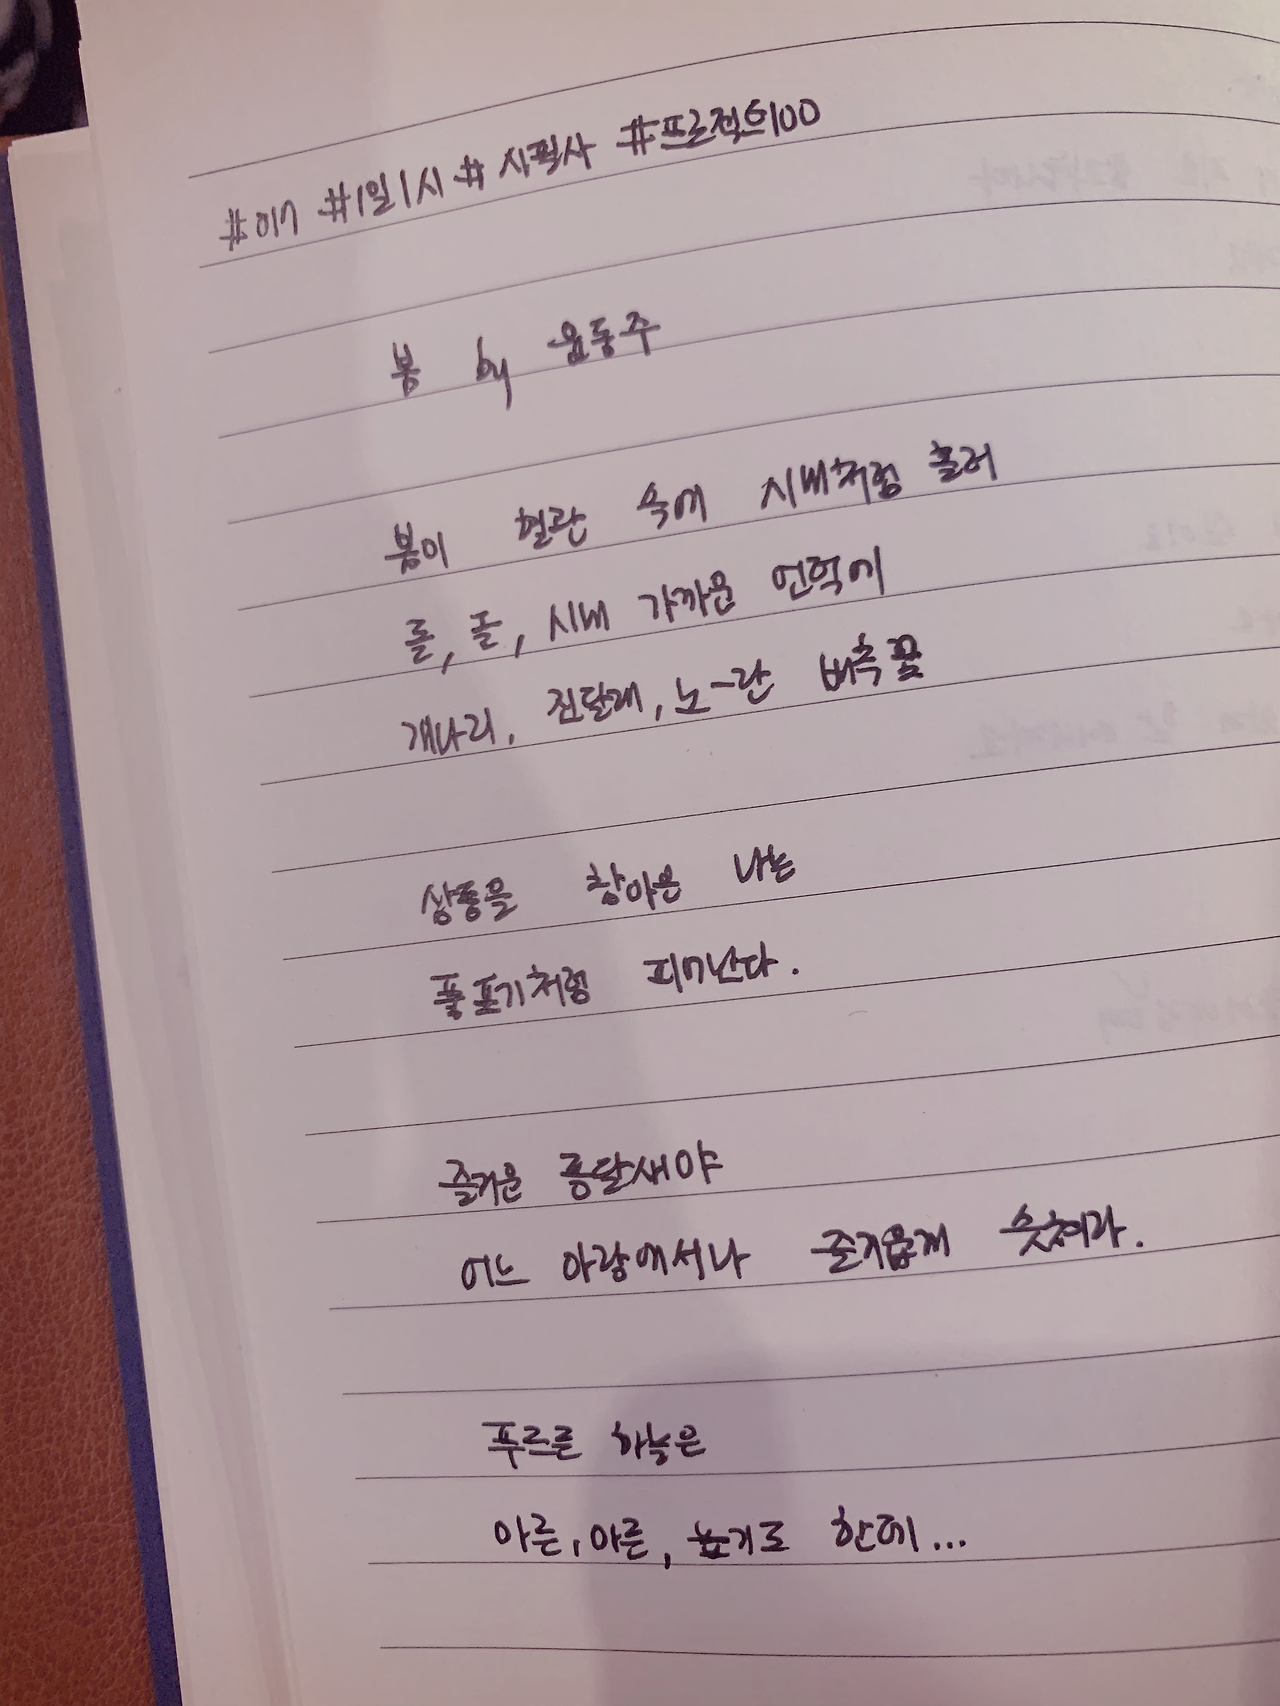 #017 #1일1시 #시필사 #프로젝트100
봄 by 윤동주
봄이 혈관 속에 시내처럼 흘러
돌, 돌, 시내 가까운 언덕에
개나리, 진달래, 노-란 배추꽃
삼동을 참아온 나는
풀포기처럼 피어난다.
즐거운 종달새야
어느 이랑에서나 즐거웁게 솟쳐라.
푸르른 하늘은
아른, 아른, 높기도 한데...